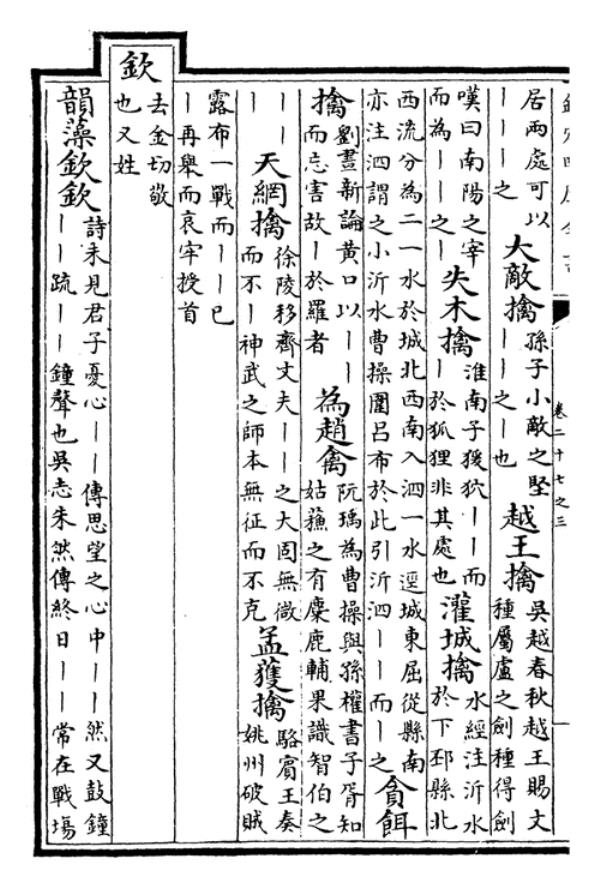 卷二十七之三
居兩處可以
｜｜｜之
大敵擒
孫子小敵之堅
｜｜｜之｜也
越王擒
吳越春秋越王賜文
種屬盧之劍種得劍
嘆曰南陽之宰
而為｜｜之｜
失木擒
淮南子猨狖｜｜而
｜於狐狸非其處也
灌城擒
水經注沂水
於下邳縣北
西流分為二一水於城北西南入泗一水逕城東屈從縣南
亦注泗謂之小沂水曹操圍呂布於此引沂泗｜｜而｜之
貪餌
擒
劉晝新論黄口以｜｜
而忘害故｜於羅者
為趙禽
阮瑀為曹操與孫權書子胥知
姑蘓之有麋鹿輔果識智伯之
｜｜
｜
天網擒
徐陵移齊文夫｜｜之大固無微
而不｜神武之師本無征而不克
孟獲擒
駱賓王奏
姚州破賊
露布一戰而｜｜已
｜再舉而哀牢授首
欽
去金切敬
也又姓
韻藻
欽欽
詩未見君子憂心｜｜傳思望之心中｜｜然又鼓鐘
｜｜疏｜｜鐘聲也吳志朱然傳終日｜｜常在戰塲